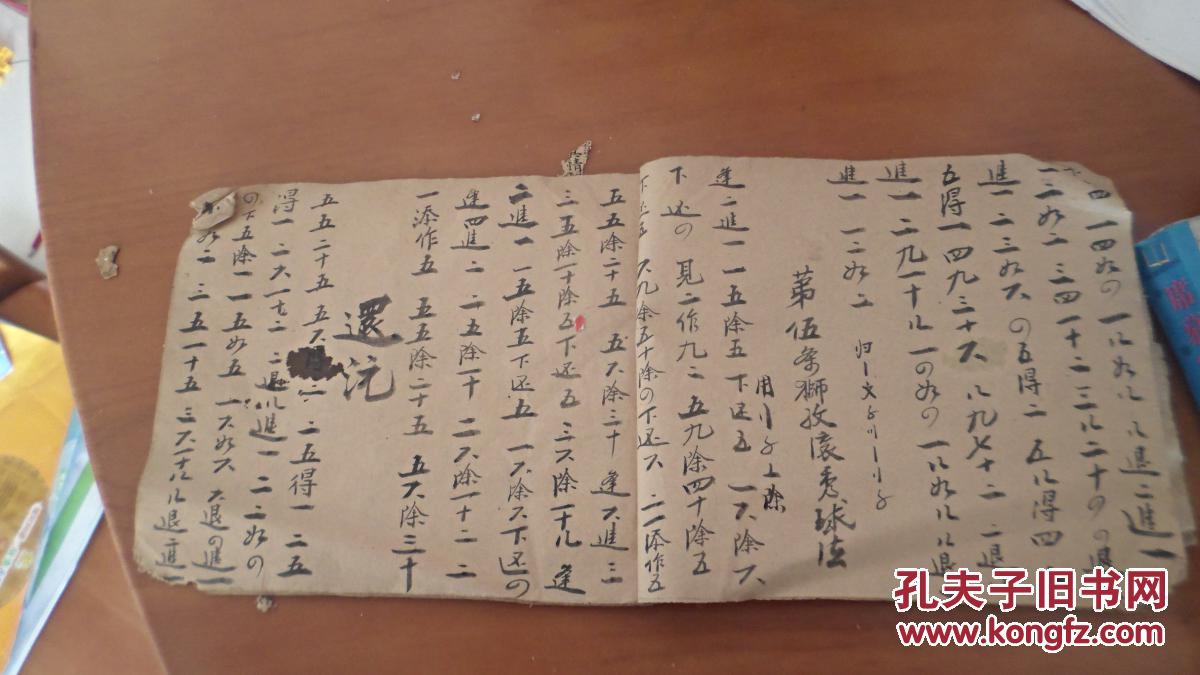 下四一四如四一八如八八退二進一
一二如二三四十二三八二十四四退
進一二三如六四五得二五八得四
五得一四九三十六八九七十二二退
進一二九一十八一四如四一八如八八退
進一一二如二
归
第伍条獅孜滚秀球法
用
上除
逢二進一一五除五下还五一六除六
下还四見二作九二五九除四十除五
下还五六九除五十除四下还六二一添作五
五五除二十五五六除三十逢六進三
三五除一十除五下还五三六除一十八逢
二進一一五除五下还五一六除六下还四
逢四進二二五除一十二六除一十二二
一添作五五五除二十五五六除三十
還沅
五五二十五五六二一五得一二五
得一二六一十二二退八進一二二如四
四下五除一一五如五一六如六六退四進一
如二三五一十五三六一十八八退二進一
孔夫子旧书网
www.kongfz.com